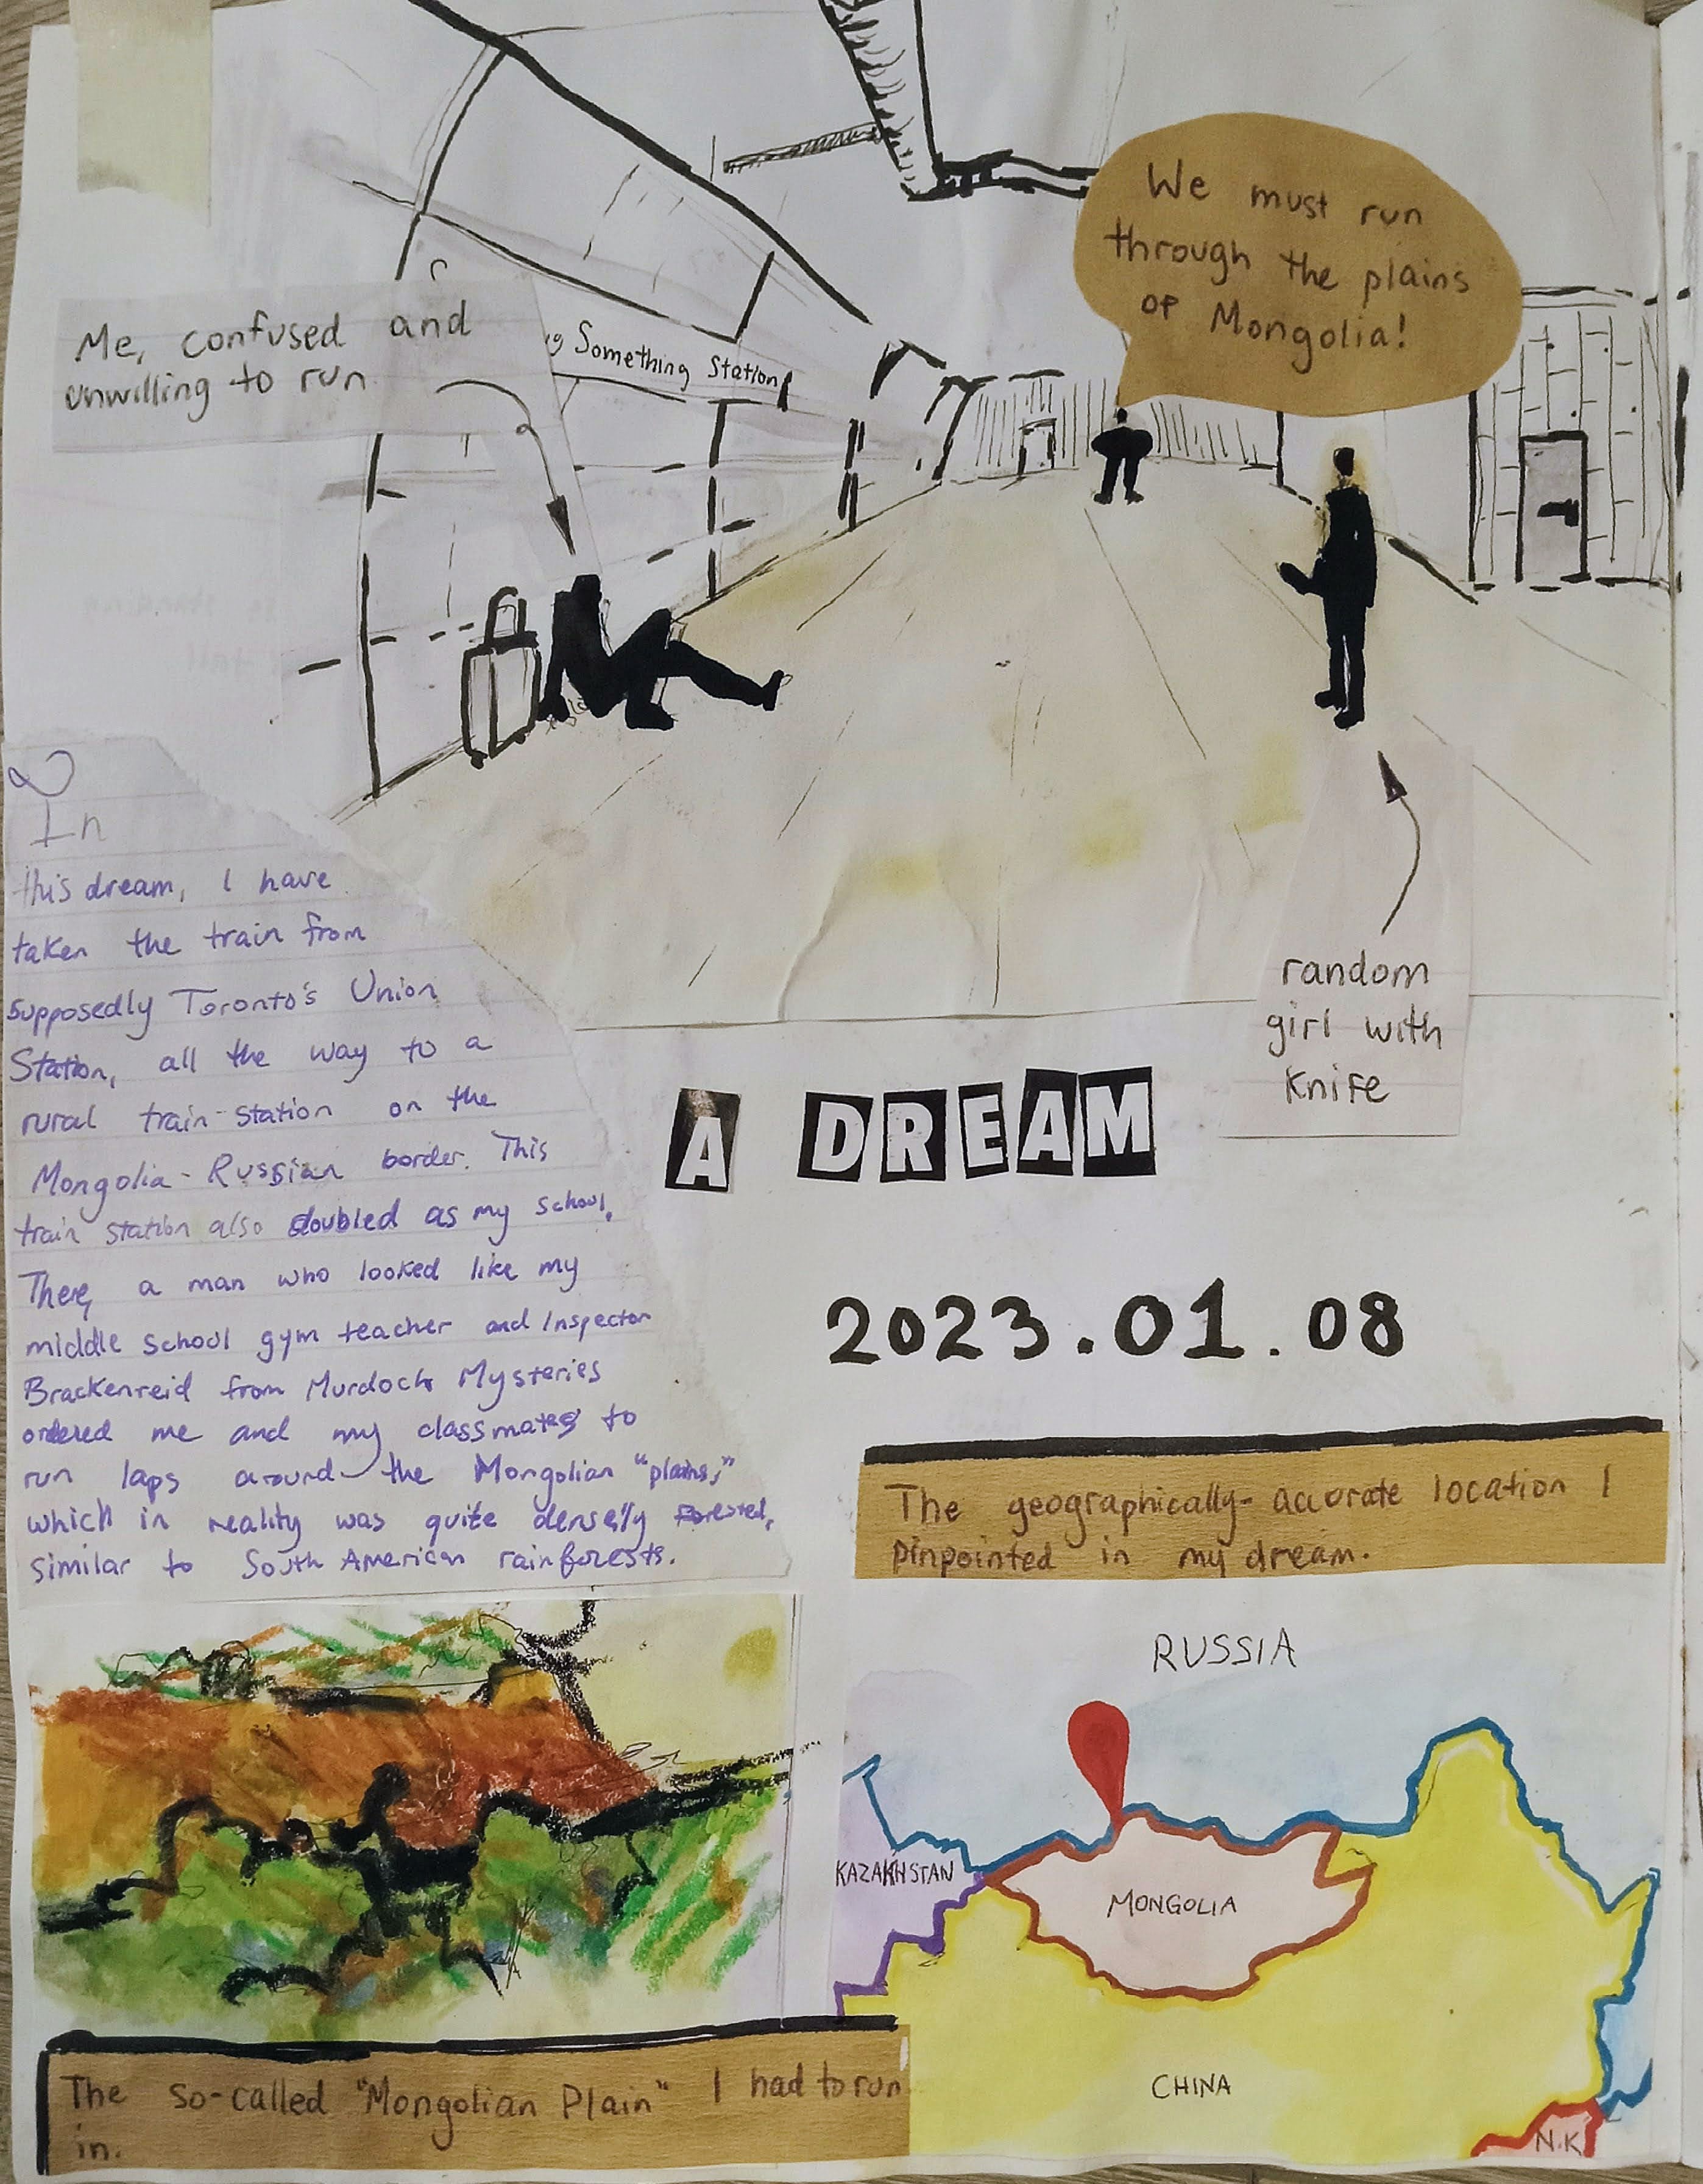 We must run
through the plains
of Mongolia!
Me, confused and
unwilling to run
Something Station
random
girl with
knife
In
this dream, I have
taken the train from
supposedly Toronto's Union
Station, all the way to a
rural train-station on the
Mongolia-Russian border. This
train station also doubled as my school.
There, a man who looked like my
middle school gym teacher and Inspector
Brackenreid from Murdoch Mysteries
ordered me and my classmates to
run laps around the Mongolian "plains,"
which in reality was quite densely forested,
similar to South American rainforests.
A DREAM
2023.01.08
The geographically-accurate location I
pinpointed in my dream.
RUSSIA
KAZAKHSTAN
MONGOLIA
CHINA
N.K
The so-called "Mongolian Plain" I had to run
in.